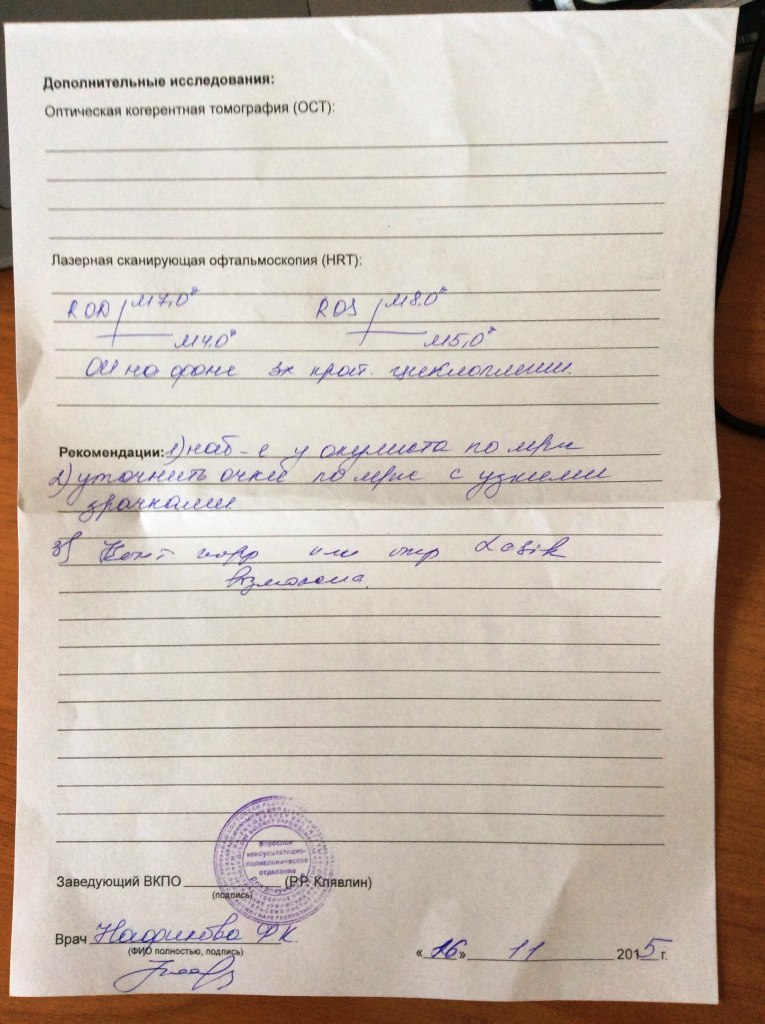 Дополнительные исследования:
Оптическая когерентная томография (ОСТ):
Лазерная сканирующая офтальмоскопия (HRT):
ROD М7,0ᴰ ROS М8,0ᴰ
М4,0ᴰ М5,0ᴰ
OU на фоне 3х крат. циклоплегии.
Рекомендации: 1) наб-е у окулиста по м/ж
2) уточнить очки по м/ж с узкими
зрачками
3) Конт корр или опер Lasik
возможна.
Взрослое
консультативно-
поликлиническое
отделение
Заведующий ВКПО (Р.Р. Клявлин)
(подпись)
Врач Ф.К.
(ФИО полностью, подпись)
«16» 11 2015 г.